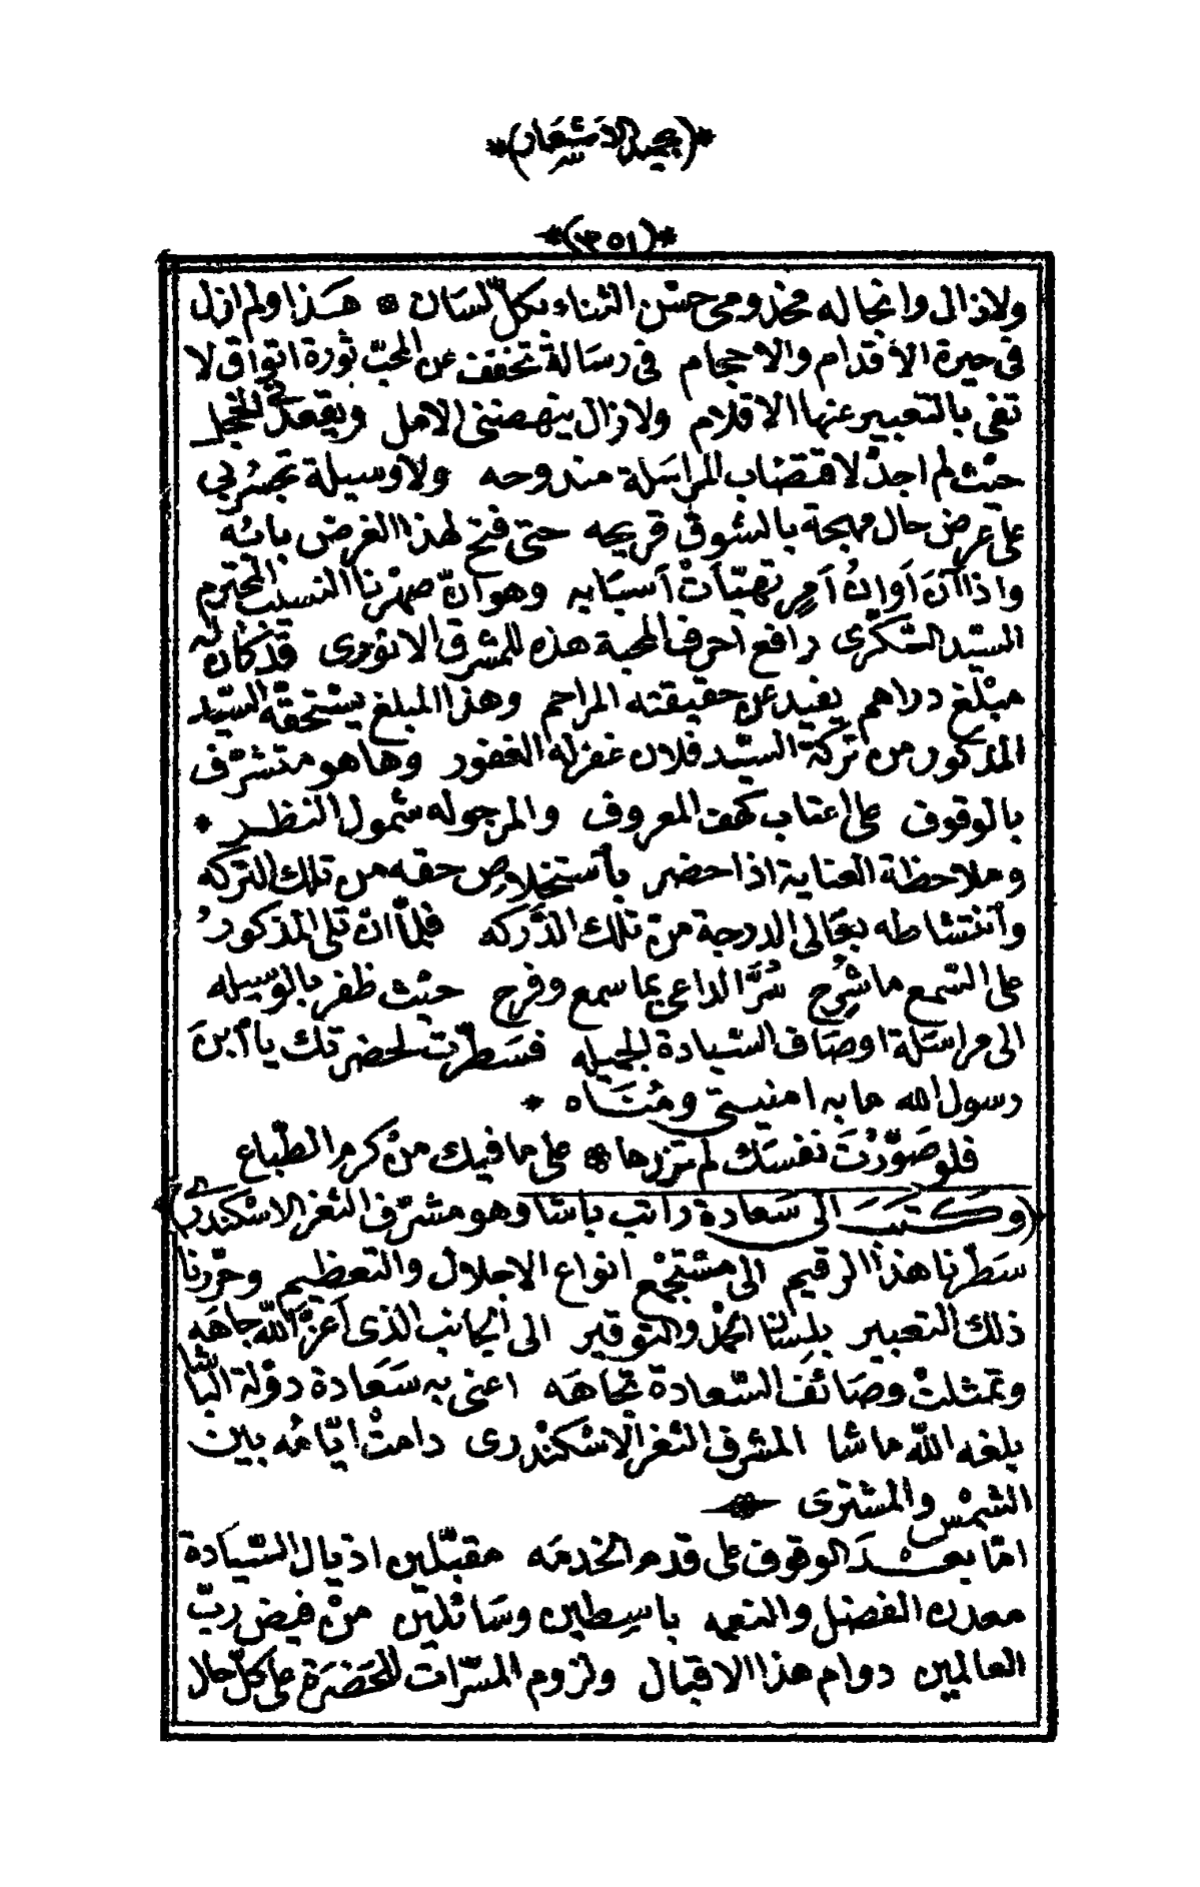 *(بجيد الاشعار)*
*(٣٥١)*
ولازال وانجاله مخدومى حسْن الثناء بكلّ لسَان * هَذا ولم ازل
فى حيرة الأقدام والاحجام فى رسَالة تخفف عن المحبّ ثورة اتواق لا
تفى بالتعبير عنها الاقلام ولازال ينهضنى الامل ويقعدنى الخجل
حيْث لم اجدْ لاقتضاب المراسَلة مندوحه ولا وسيلة تجسُر بى
على عرض حال مهجة بالشوق قريحه حتى فتح لهذا الغرض بابُه
واذا آنَ اَوانُ اَمرٍ تهيّأتْ اَسبَابه وهو انّ صهْرنا النسيب المحترم
السيّد السّكّرى رافع احرف المحبة هذه للمشرق الانورى قدْ كان له
مبْلغ دراهم يفيد عن حقيقته المراحم وهذا المبلغ يسْتحقّه السيّد
المذكور من تركة السيّد فلان غفر له الغفور وها هو متشرّف
بالوقوف على اعتاب كهف المعروف والمرجو له شمول النظر *
وملاحظة العناية اذا حضر بأستخلاصِ حقه من تلك التركه
وأنتشاطه بعَالى الدرجة من تلك الدَّركه فلمّا ان تلى المذكورُ
على السّمع ما شُرِح سُرَّ الداعى بما سمع وفرح حيْث ظفر بالوسيله
الى مراسَلة اوصَاف السّيادة الجميله فسَطّرت لحضرتك يا أبنَ
رسول الله ما به امنيتى ومُنَاه *
فلو صَوّرْتَ نفسَك لم تزدها * على ما فيك منْ كرم الطّباع
(وَكَتَبَ الى سَعادة راتب باشا وهو مشرّف الثغر الاسْكندرى)
سَطّرنا هذا الرقيم الى مسْتجْمع انواع الاجلال والتعظيم وحرّرنا
ذلك التعبير بلسَان الحمْد والتوقير الى الجانب الذى اَعزَّ اللّه جاهَه
وتمثلتْ وصَائف السّعادة تجاهَه اعنى به سَعَادة دوْلة الباشا
بلغه اللّه ما شا المشرف الثغر الاسْكنْدرى دامتْ ايّامُه بين
الشمْس والمشترى *
امّا بعْدَ الوقوف على قدم الخدمَه مقبّلين اذيال السّيادة
معدن الفضل والنعمه باسِطين وسَائلين منْ فيض ربّ
العالمين دوام هذا الاقبال ولزوم المسّرات للحَضرَة على كلّ حال